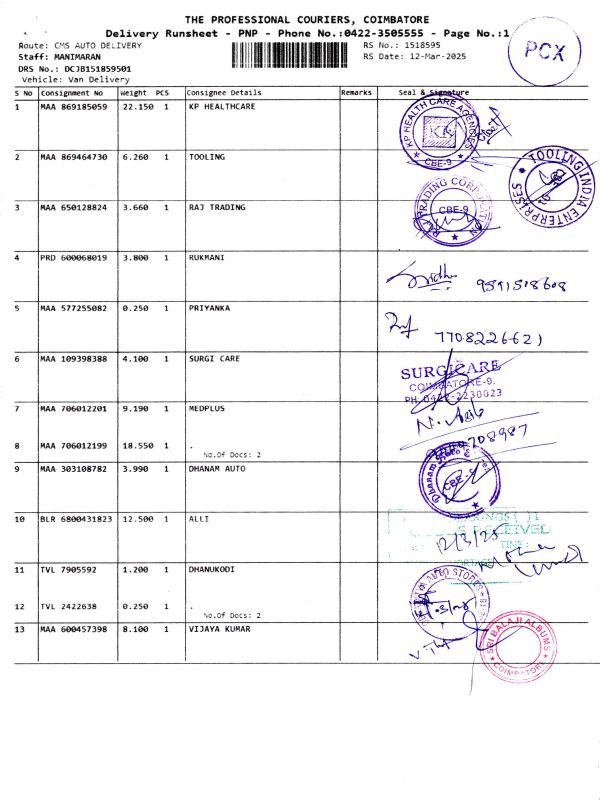 THE PROFESSIONAL COURIERS, COIMBATORE
Delivery Runsheet - PNP - Phone No.:0422-3505555 - Page No.:1
PCX
Route: CMS AUTO DELIVERY
RS No.: 1518595
Staff: MANIMARAN
RS Date: 12-Mar-2025
DRS No.: DCJB151859501
Vehicle: Van Delivery
S No Consignment No Weight PCS Consignee Details Remarks Seal & Signature
1 MAA 869185059 22.150 1 KP HEALTHCARE
KP HEALTH CARE AGENCIES
CBE-9
2 MAA 869464730 6.260 1 TOOLING
TOOLING INDIA ENTERPRISES
3 MAA 650128824 3.660 1 RAJ TRADING
RAJ TRADING CORPORATION
CBE-9
4 PRD 600068019 3.800 1 RUKMANI
9591518608
5 MAA 577255082 0.250 1 PRIYANKA
7708226621
6 MAA 109398388 4.100 1 SURGI CARE
SURGICARE
COIMBATORE-9.
PH: 0422-2230023
7 MAA 706012201 9.190 1 MEDPLUS
8 MAA 706012199 18.550 1 .
No.Of Docs: 2
9 MAA 303108782 3.990 1 DHANAM AUTO
Dhanam
CBE-9
10 BLR 6800431823 12.500 1 ALLI
RECEIVED
12/3/25
TIME:
11 TVL 7905592 1.200 1 DHANUKODI
AUTO STORES
12 TVL 2422638 0.250 1 .
No.Of Docs: 2
13 MAA 600457398 8.100 1 VIJAYA KUMAR
SRI BALAJI ALBUMS
COIMBATORE